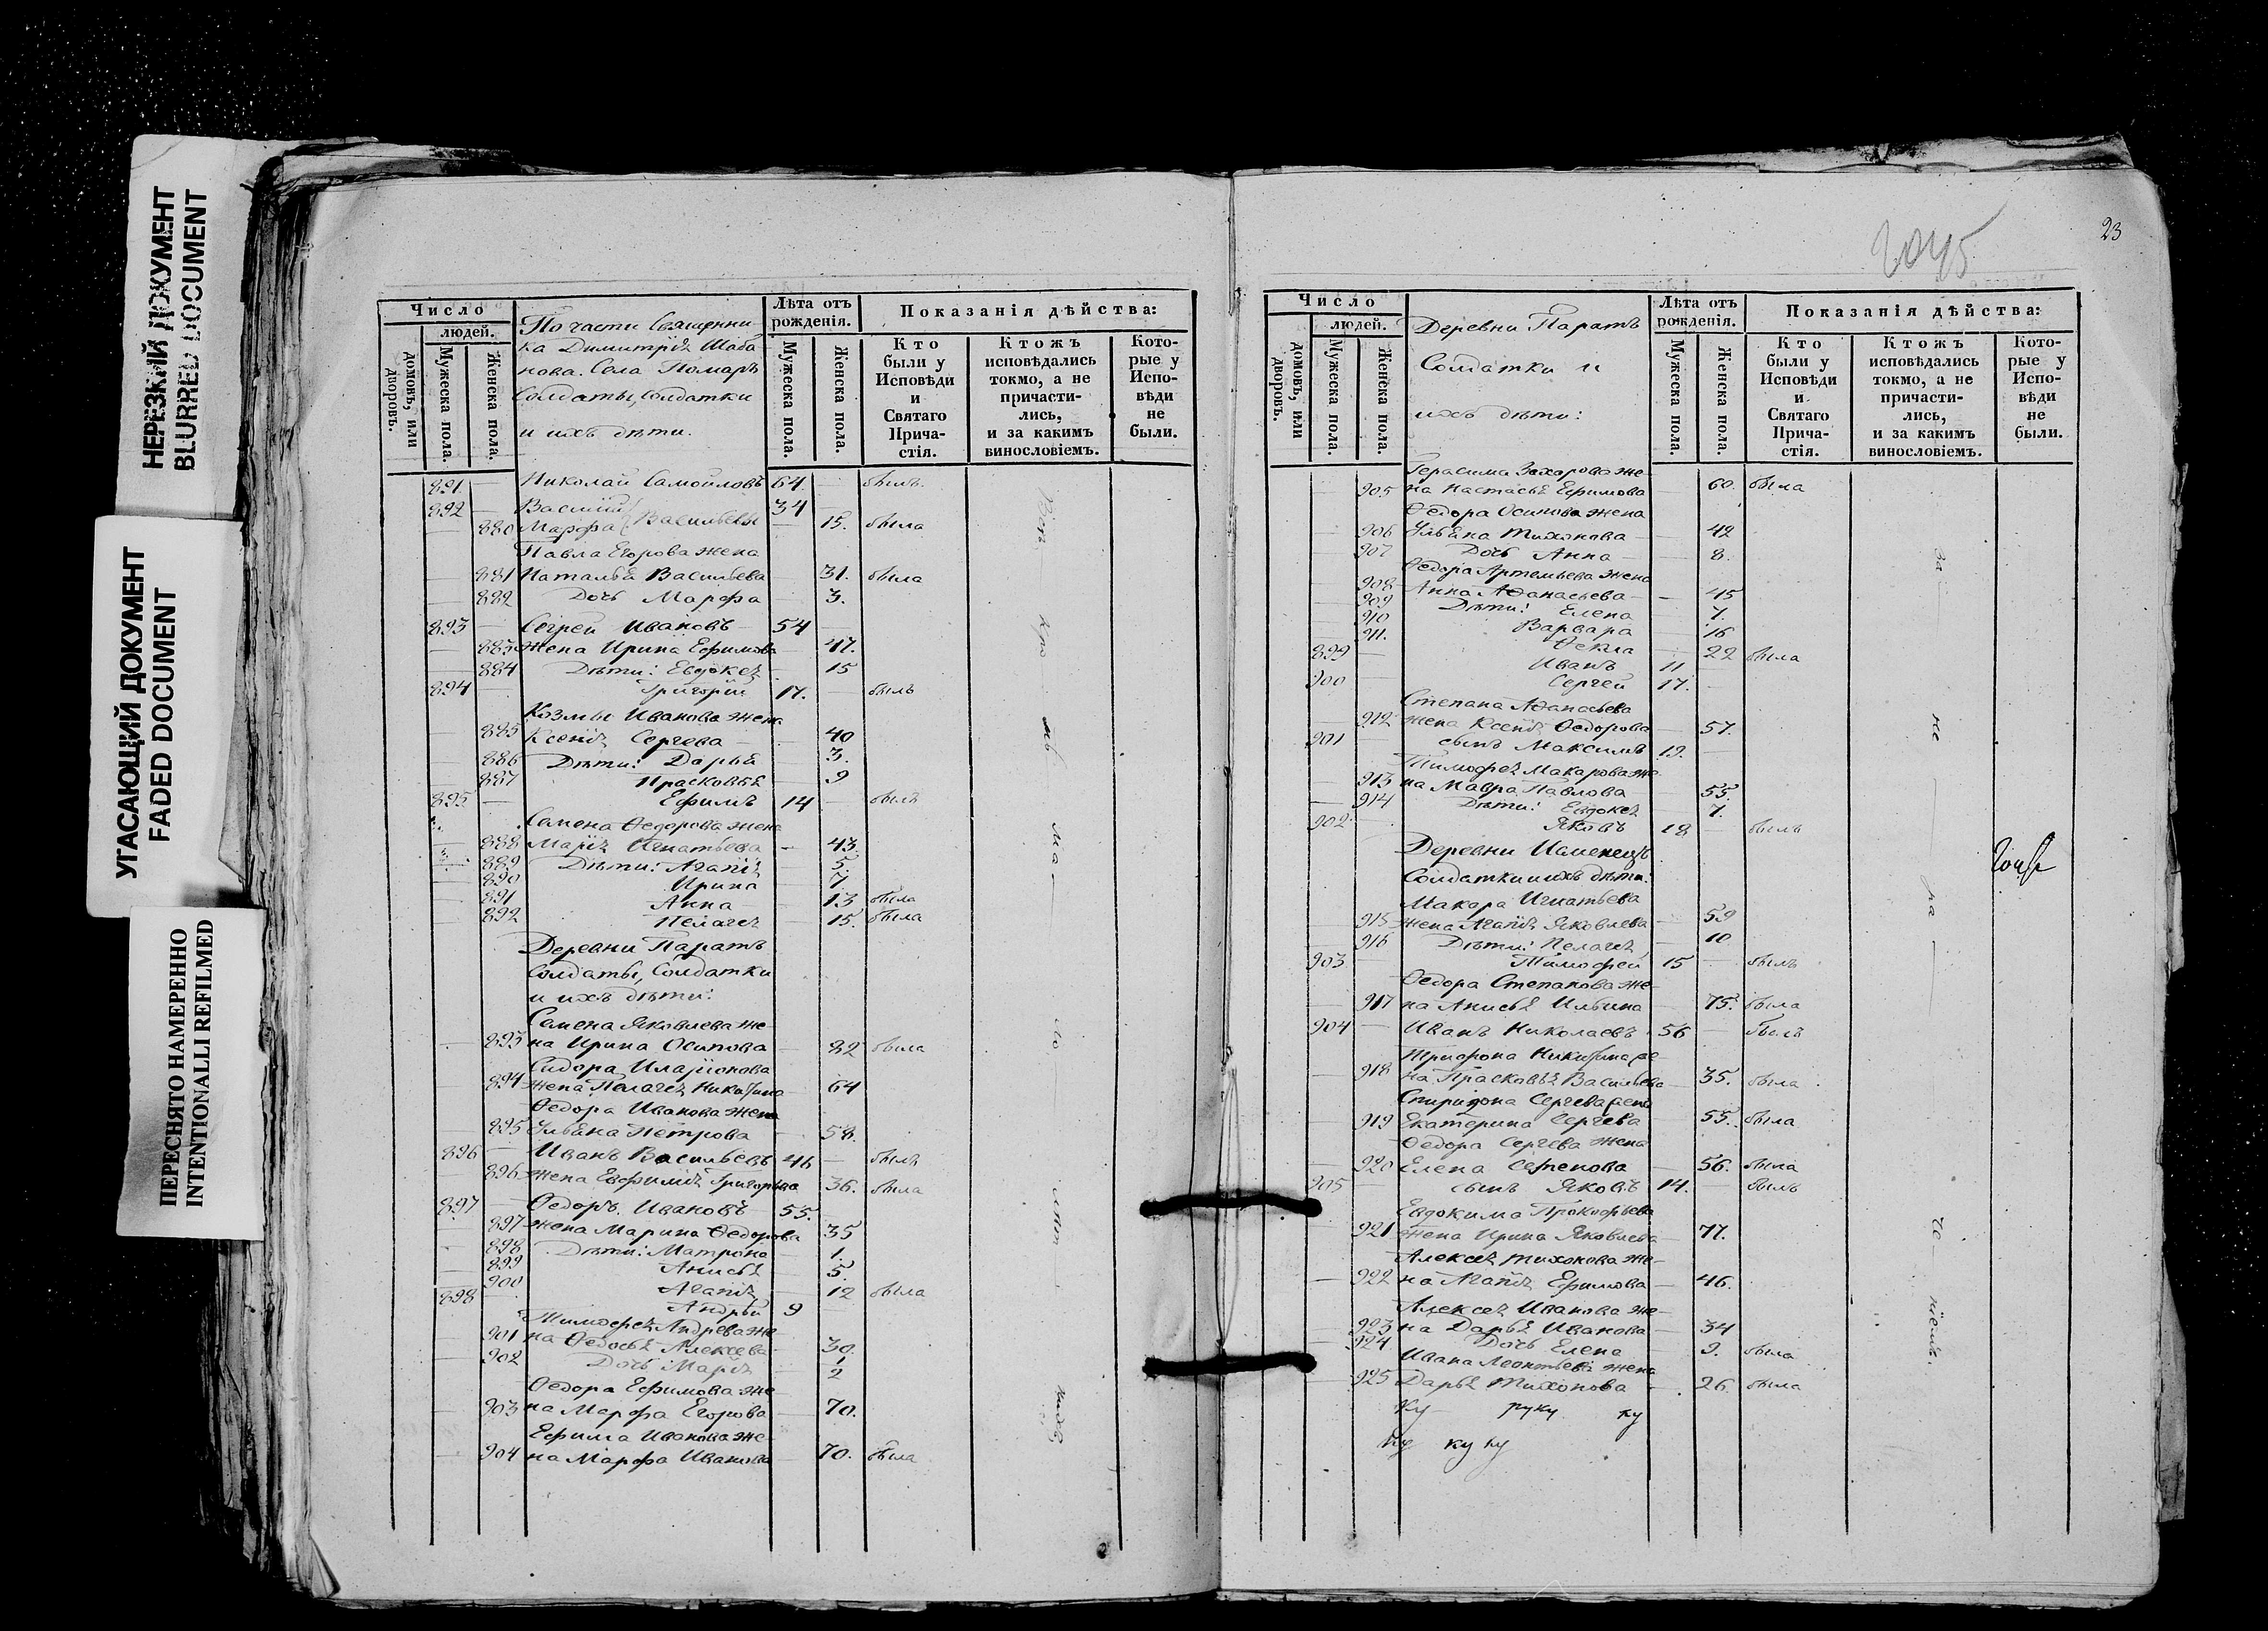 НЕРЕЗКИЙ ДОКУМЕНТ
BLURRED DOCUMENT
УГАСАЮЩИЙ ДОКУМЕНТ
FADED DOCUMENT
ПЕРЕСНЯТО НАМЕРЕННО
INTENTIONALLI REFILMED
Число
людей.
домовъ, или дворовъ.
Мужеска пола.
Женска пола.
По части Священни-
ка Димитрія Шаба-
нова. Села Помаръ
Солдаты, солдатки
и ихъ дѣти.
Лѣта отъ рожденія.
Мужеска пола.
Женска пола.
Показанія дѣйства:
Кто были у Исповѣди и Святаго Прича-стія.
Ктожъ исповѣдались токмо, а не причасти-лись, и за какимъ винословіемъ.
Кото-рые у Испо-вѣди не были.
891 — Николай Самойловъ 64. былъ
892 — Василій 34
880 Марфа } Васильевы — 15. была
Павла Егорова жена
881 Наталья Васильева 31. была
882 Дочь Марфа 3.
893 — Сергей Ивановъ 54
883 жена Ирина Ефимова 47.
884 Дѣти: Евдокея 15
894 — Григорій 17. — былъ
Козмы Иванова жена
885 Ксенія Сергева — 40
886 Дѣти: Дарья 3.
887 Прасковья 9
895 — Ефимъ 14 — былъ
Самена Ѳедорова жена
888 Марія Игнатьева — 43.
889 Дѣти: Агапія 5.
890 Ирина 7
891 Анна 13 была
892 Пелагея 15. была
Деревни Паратъ
Солдаты, Солдатки
и ихъ дѣти:
Самена Яковлева же-
893 на Ирина Осипова 82 была
Сидора Иларіонова
894 жена Пелагея Никитина 64
Ѳедора Иванова жена
895 Ульяна Петрова 58.
896 — Иванъ Васильевъ 46 — былъ
896 жена Евфимія Григорьва 36. была
897 — Ѳедоръ Ивановъ — 55.
897 жена Марина Ѳедорова 35
898 Дѣти: Матрона 1.
899 Анисья 5.
900 Агапія 12 была
898 Андрей 9
Тимофея Андрева же-
901 на Ѳедосья Алексева 30.
902 Дочь Марія 2
Ѳедора Ефимова же-
903 на Марфа Егорова 70.
Ефима Иванова же-
904 на Марфа Иванова 70. была
2045
23
Число
людей.
домовъ, или дворовъ.
Мужеска пола.
Женска пола.
Деревни Паратъ
Солдатки и
ихъ дѣти:
Лѣта отъ рожденія.
Мужеска пола.
Женска пола.
Показанія дѣйства:
Кто были у Исповѣди и Святаго Прича-стія.
Ктожъ исповѣдались токмо, а не причасти-лись, и за какимъ винословіемъ.
Кото-рые у Испо-вѣди не были.
Герасима Захарова же-
905 на Настасья Ефимова 60. была
Ѳедора Осипова жена
906 Ульяна Тихонова 42
907 Дочь Анна 8.
Ѳедора Артемьева жена
908 Анна Аѳанасьева 45
909 Дѣти: Елена 7.
910 Варвара 16
911. Ѳекла 22 была
899 Иванъ 11
900 Сергей 17.
Степана Аѳанасьева
912 жена Ксенія Ѳедорова 57.
901 сынъ Максимъ 19.
Тимофея Макарова же-
913 на Мавра Павлова 55.
914 Дѣти: Евдокея 7.
902 Яковъ 18 — былъ
Деревни
Солдатки и ихъ дѣти:
Макара Игнатьева
915 жена Агапія Яковлева 59
916 Дѣти: Пелагея 10
903 Тимофей 15 — былъ
Ѳедора Степанова же-
917 на Анисья Ильина 75. была
904 — Иванъ Николаевъ 56 — былъ
Трифона Никитина же-
918 на Прасковья Васильева 35. была
Спиридона Сергева жена
919 Екатерина Сергева 55. была
Ѳедора Сергева жена
920 Елена Семенова 56. была
905 сынъ Яковъ 14. — былъ
Евдокима Прокофьева
921 жена Ирина Яковлева 77.
Алексея Тихонова же-
922 на Агапія Ефимова 46.
Алексея Иванова же-
923 на Дарья Иванова 34
924 Дочь Елена 9. была
Ивана Леонтьева жена
925 Дарья Тихонова 26. была
ку руку ку
ку ку ку